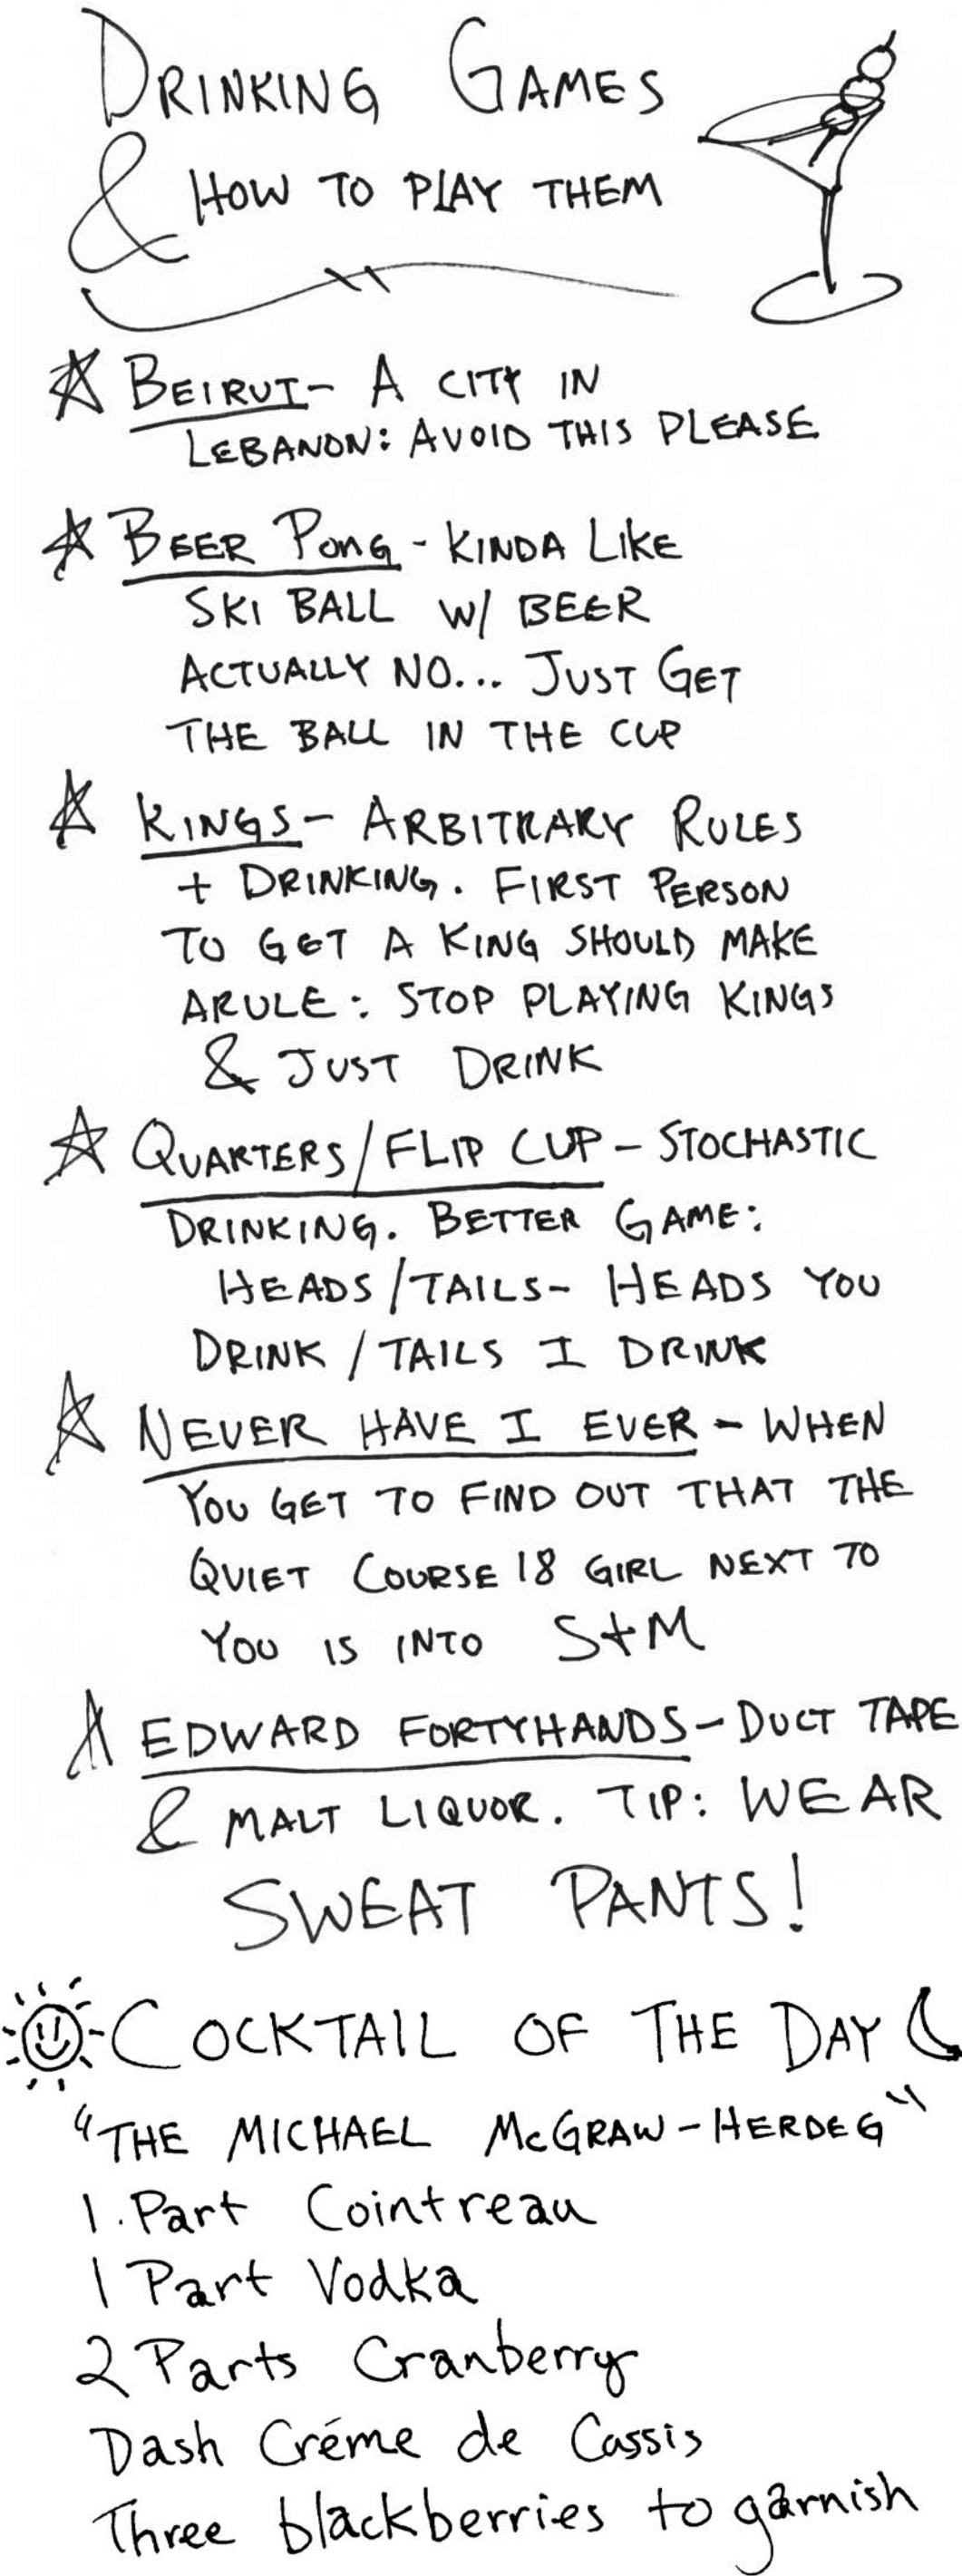 DRINKING GAMES
& HOW TO PLAY THEM
BEIRUT- A CITY IN
LEBANON: AVOID THIS PLEASE
BEER PONG - KINDA LIKE
SKI BALL W/ BEER
ACTUALLY NO... JUST GET
THE BALL IN THE CUP
KINGS- ARBITRARY RULES
+ DRINKING. FIRST PERSON
TO GET A KING SHOULD MAKE
A RULE: STOP PLAYING KINGS
& JUST DRINK
QUARTERS/FLIP CUP - STOCHASTIC
DRINKING. BETTER GAME:
HEADS/TAILS- HEADS YOU
DRINK / TAILS I DRINK
NEVER HAVE I EVER - WHEN
YOU GET TO FIND OUT THAT THE
QUIET COURSE 18 GIRL NEXT TO
YOU IS INTO S+M
EDWARD FORTYHANDS - DUCT TAPE
& MALT LIQUOR. TIP: WEAR
SWEAT PANTS!
COCKTAIL OF THE DAY
"THE MICHAEL McGRAW-HERDEG"
1. Part Cointreau
1 Part Vodka
2 Parts Cranberry
Dash Créme de Cassis
Three blackberries to garnish